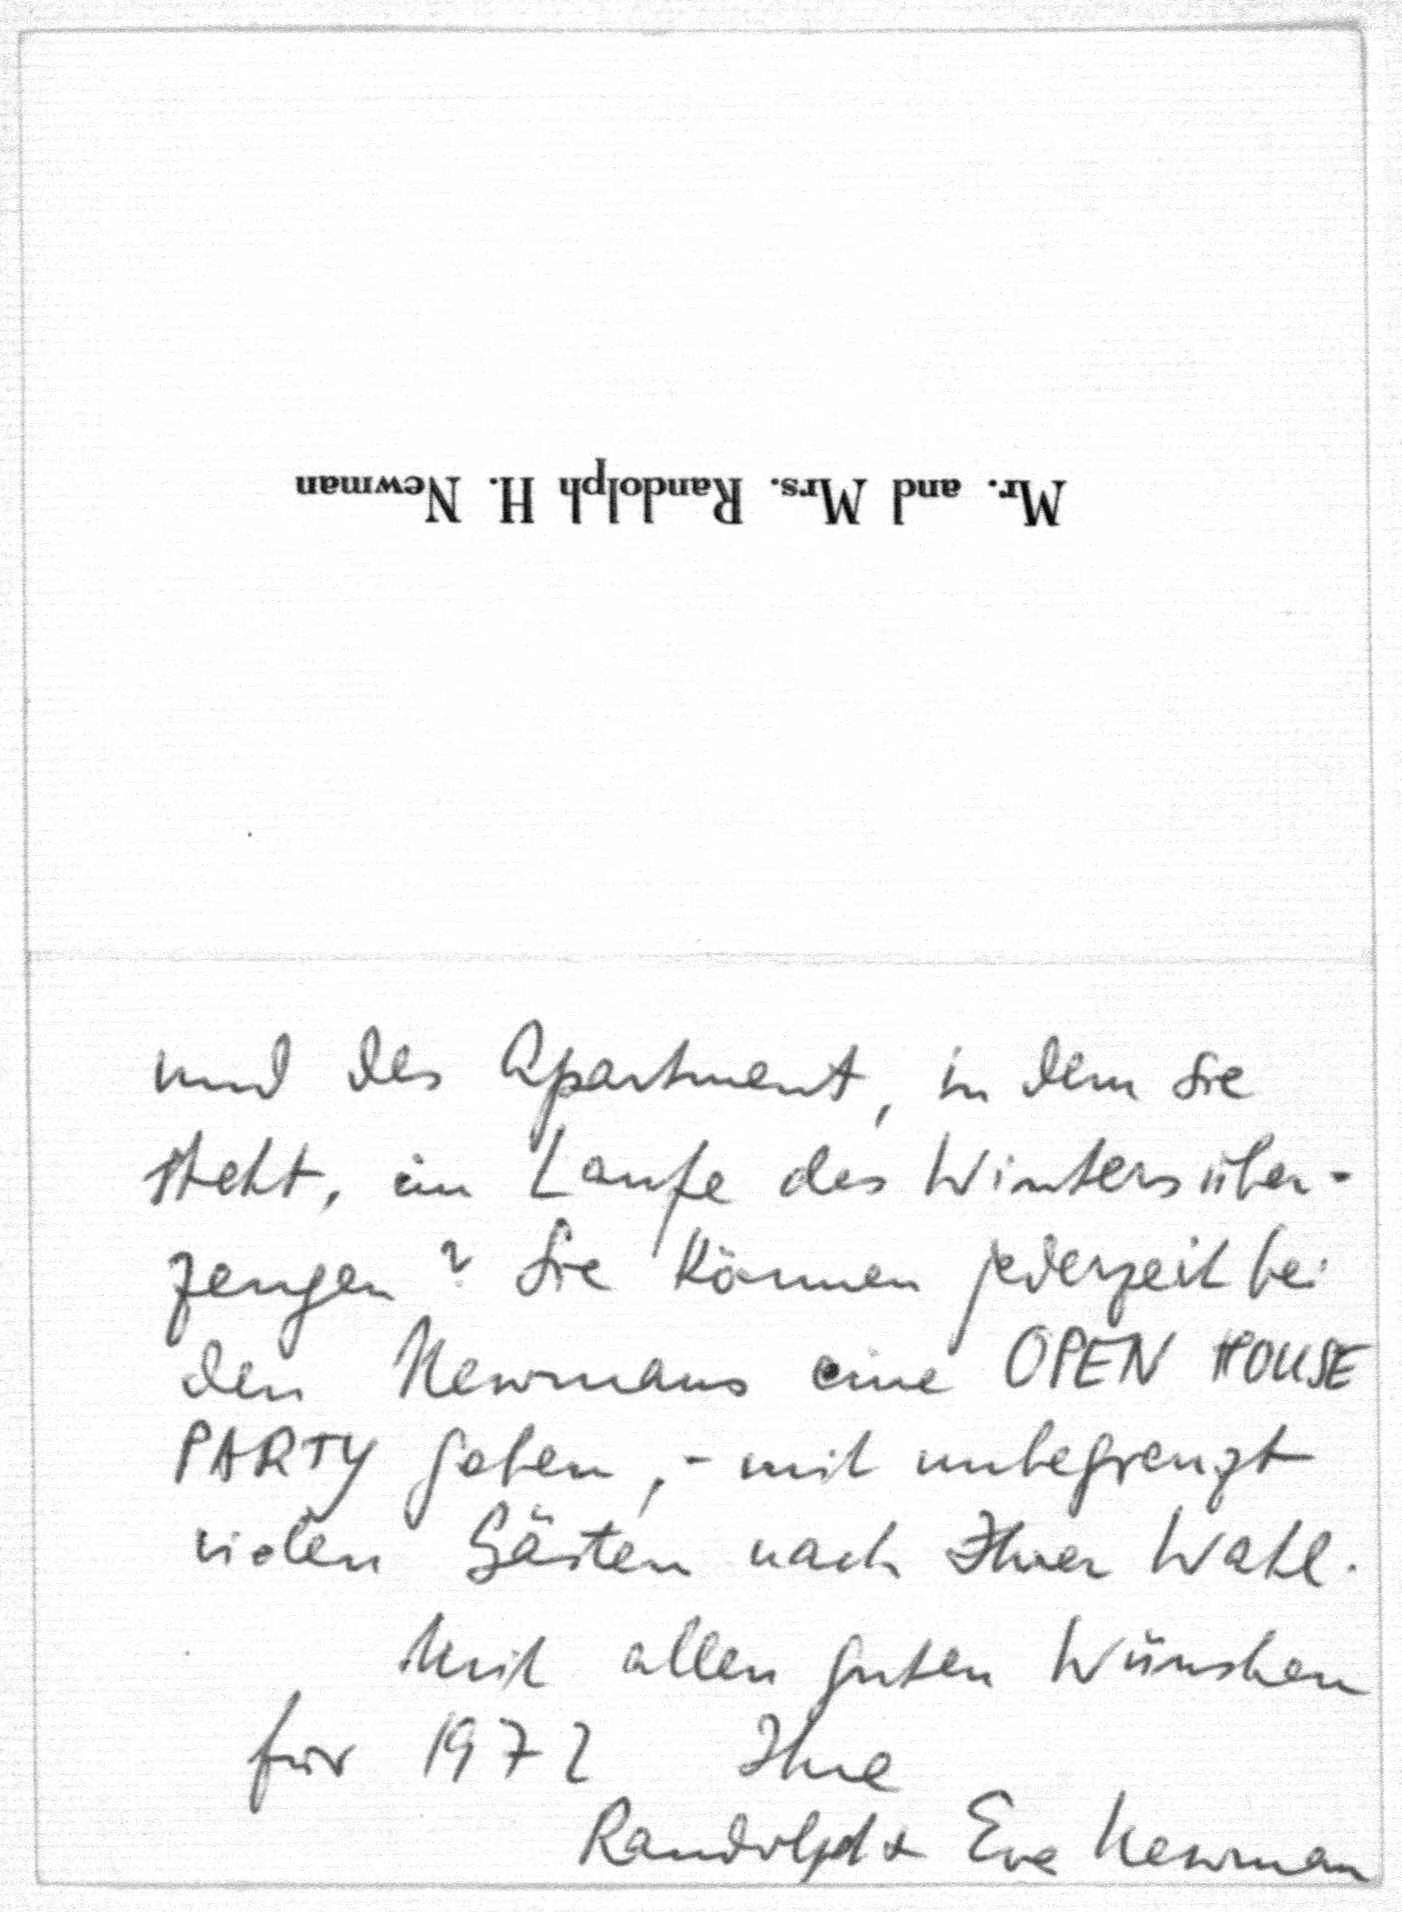 Mr. and Mrs. Randolph H. Newman
und des Apartment, in dem sie
steht, im Laufe des Winters über-
zeugen? Sie können jederzeit bei
den Newmans eine OPEN HOUSE
PARTY geben, - mit unbegrenzt
vielen Gästen nach Ihrer Wahl.
Mit allen guten Wünschen
für 1972 Ihre
Randolph + Eve Newman